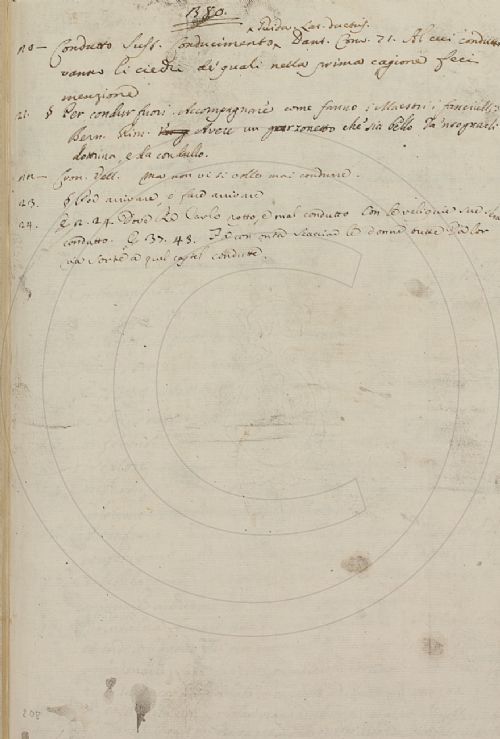 1380.
Guida. Lat. ductus.
no — Condutto Sust. Conducimento, Dant. Conv. 71. Al ceci condutto
vanno li ciechi de' quali nella prima cagione feci
menzione
21. § Per condur fuori. Accompagnare come fanno i Maestri i fanciulli;
Bern. Rim. Avere un garzonetto che sia bello Da
dottrina, e da condullo.
Cron. Vell. Ma non vi si volle mai condurre.
23. § Per arrivare, e fare arrivare
24. G. 12. 24. Dove Re Carlo rotto e mal condutto Con le reliquie sue
condutto. G. 37. 43. con onta scacciar le donne
va sorte a quel castel condutte.
208